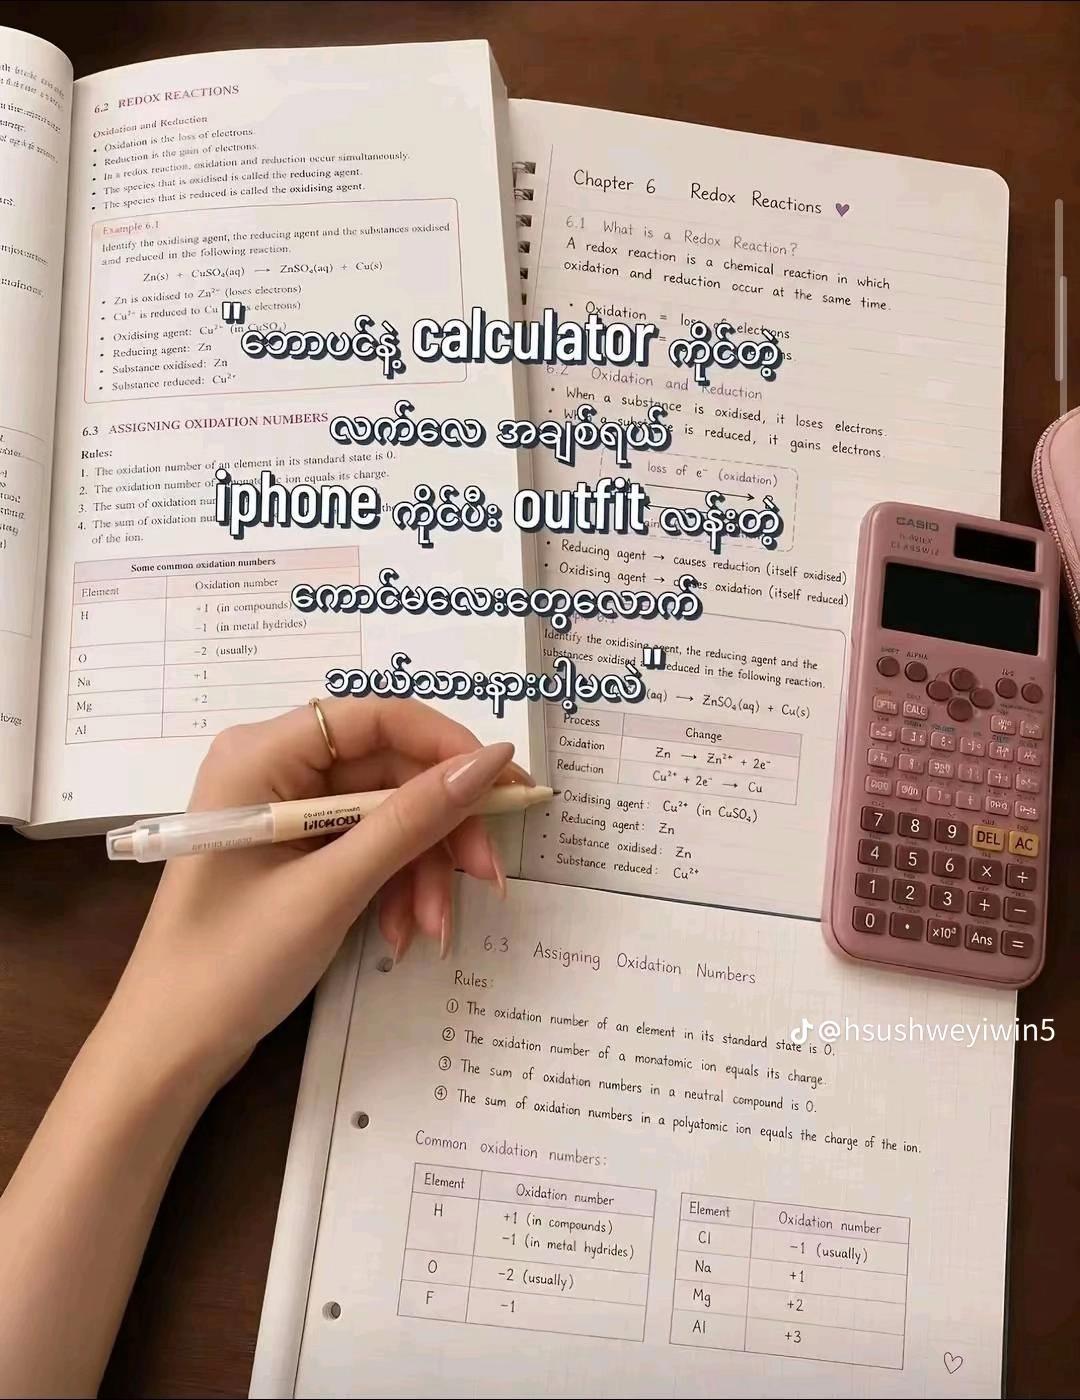 6.2 REDOX REACTIONS
Oxidation and Reduction
• Oxidation is the loss of electrons.
• Reduction is the gain of electrons.
• In a redox reaction, oxidation and reduction occur simultaneously.
• The species that is oxidised is called the reducing agent.
• The species that is reduced is called the oxidising agent.
Example 6.1
Identify the oxidising agent, the reducing agent and the substances oxidised
and reduced in the following reaction.
Zn(s) + CuSO₄(aq) → ZnSO₄(aq) + Cu(s)
• Zn is oxidised to Zn²⁺ (loses electrons)
• Cu²⁺ is reduced to Cu electrons)
• Oxidising agent: Cu²⁺ (in CuSO₄)
• Reducing agent: Zn
• Substance oxidised: Zn
• Substance reduced: Cu²⁺
6.3 ASSIGNING OXIDATION NUMBERS
Rules:
1. The oxidation number of an element in its standard state is 0.
2. The oxidation number of ion equals its charge.
3. The sum of oxidation
4. The sum of oxidation
of the ion.
Some common oxidation numbers
Element Oxidation number
H +1 (in compounds)
−1 (in metal hydrides)
O −2 (usually)
Na +1
Mg +2
Al +3
98
"ဘောပင်နဲ့ calculator ကိုင်တဲ့
လက်လေ အချစ်ရယ်
iphone ကိုင်ပီး outfit လန်းတဲ့
ကောင်မလေးတွေလောက်
ဘယ်သားနားပါ့မလဲ"
Chapter 6 Redox Reactions 💜
6.1 What is a Redox Reaction?
A redox reaction is a chemical reaction in which
oxidation and reduction occur at the same time.
• Oxidation = loss of electrons
6.2 Oxidation and Reduction
• When a substance is oxidised, it loses electrons.
• When a substance is reduced, it gains electrons.
loss of e⁻ (oxidation)
• Reducing agent → causes reduction (itself oxidised)
• Oxidising agent → causes oxidation (itself reduced)
Identify the oxidising agent, the reducing agent and the
substances oxidised reduced in the following reaction.
(aq) → ZnSO₄(aq) + Cu(s)
Process Change
Oxidation Zn → Zn²⁺ + 2e⁻
Reduction Cu²⁺ + 2e⁻ → Cu
• Oxidising agent: Cu²⁺ (in CuSO₄)
• Reducing agent: Zn
• Substance oxidised: Zn
• Substance reduced: Cu²⁺
CASIO
CLASSWIZ
SHIFT ALPHA
OPTN CALC
7 8 9 DEL AC
4 5 6 × ÷
1 2 3 + −
0 • ×10ˣ Ans =
6.3 Assigning Oxidation Numbers
Rules:
① The oxidation number of an element in its standard state is 0.
② The oxidation number of a monatomic ion equals its charge.
③ The sum of oxidation numbers in a neutral compound is 0.
④ The sum of oxidation numbers in a polyatomic ion equals the charge of the ion.
@hsushweyiwin5
Common oxidation numbers:
Element Oxidation number
H +1 (in compounds)
−1 (in metal hydrides)
O −2 (usually)
F −1
Element Oxidation number
Cl −1 (usually)
Na +1
Mg +2
Al +3